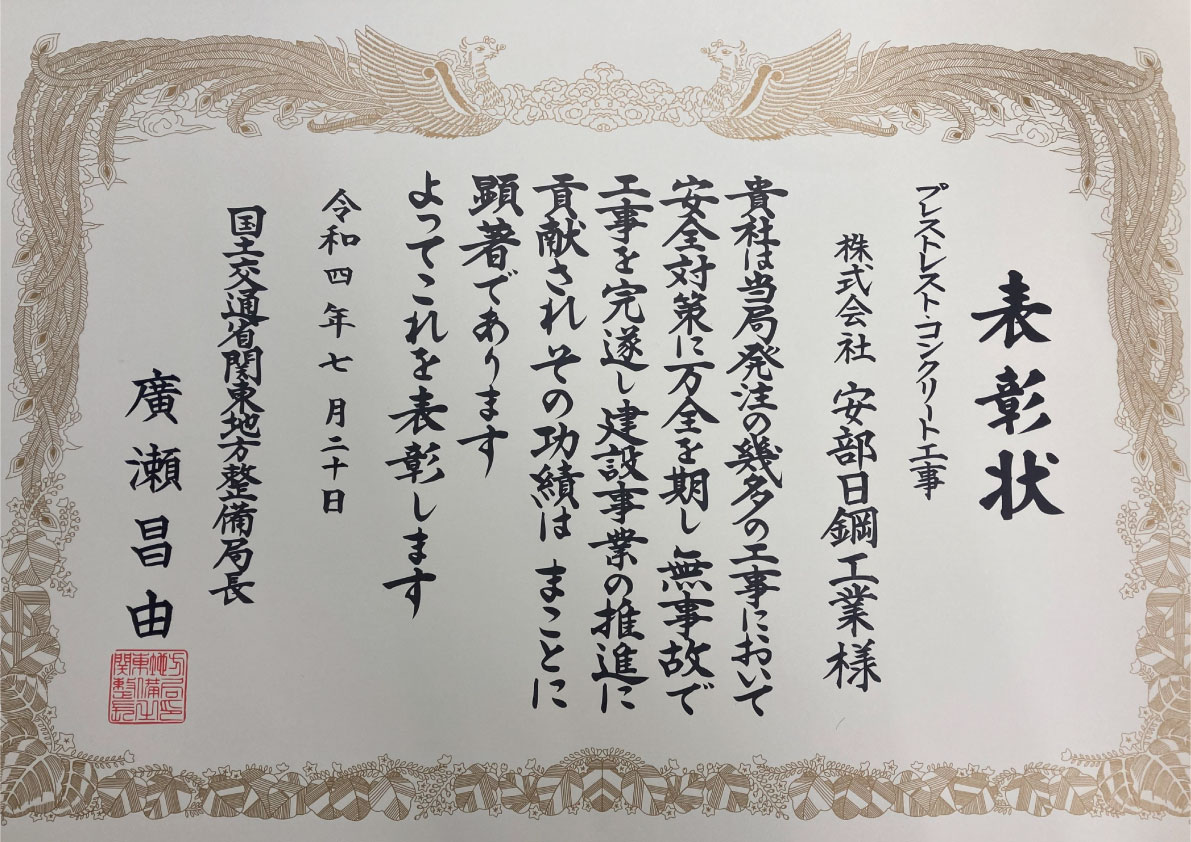 表彰状
プレストレスト・コンクリート工事
株式会社 安部日鋼工業様
貴社は当局発注の幾多の工事において
安全対策に万全を期し無事故で
工事を完遂し建設事業の推進に
貢献されその功績はまことに
顕著であります
よってこれを表彰します
令和四年七月二十日
国土交通省関東地方整備局長
廣瀬昌由